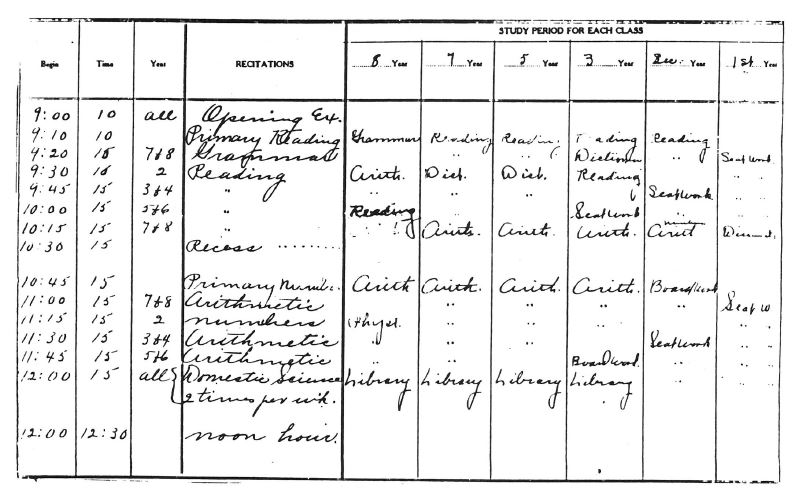 STUDY PERIOD FOR EACH CLASS
Begin Time Year RECITATIONS 8 Year 7 Year 5 Year 3 Year Sec. Year 1st Year
9:00 10 all Opening Ex.
9:10 10 Primary Reading Grammar Reading Reading Reading Reading
9:20 15 7+8 Grammar " " " " Seat Work
9:30 15 2 Reading Arith. Dict. Dict. Reading
9:45 15 3+4 " " " " Seatwork " "
10:00 15 5+6 " Reading " " Seatwork " " " "
10:15 15 7+8 " Ariths. Arith. Arith. Arith
10:30 15 Recess ..........
10:45 15 Primary Arith Arith. Arith. Arith. Board Work
11:00 15 7+8 Arithmetic " " " " " " Seat W
11:15 15 2 numbers " " " " " " " "
11:30 15 3+4 Arithmetic " " " " " Seatwork " "
11:45 15 5+6 Arithmetic " " " " Board Work " "
12:00 15 all Domestic Science Library Library Library Library " " " "
2 times per wk.
12:00 12:30 noon hour.